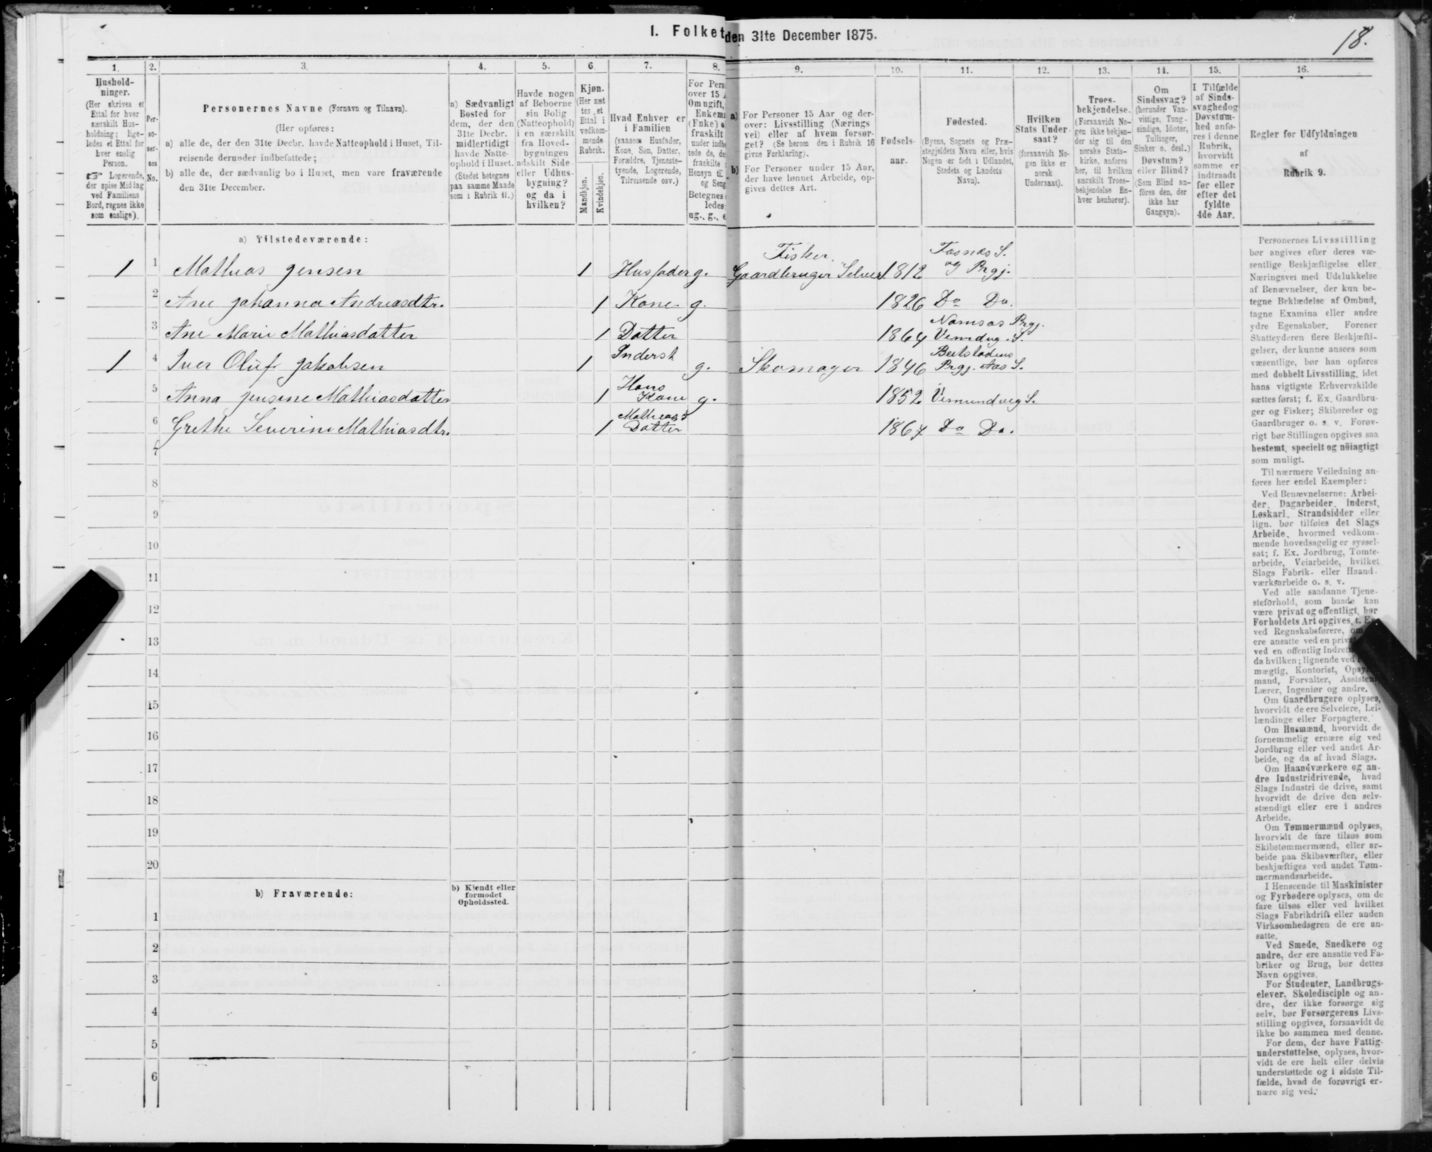 I. Folket
den 31te December 1875.
18.
1.
Hushold-
ninger.
(Her skrives et
Ettal for hver
særskilt Hus-
holdning; lige-
ledes et Ettal for
hver enslig
Person.
Logerende,
der spise Middag
ved Familiens
Bord, regnes ikke
som enslige).
2.
Per-
so-
ner-
nes
No.
3.
Personernes Navne (Fornavn og Tilnavn).
(Her opføres:
a) alle de, der den 31te Decbr. havde Natteophold i Huset, Til-
reisende derunder indbefattede;
b) alle de, der sædvanlig bo i Huset, men vare fraværende
den 31te December.
4.
a) Sædvanligt
Bosted for
dem, der den
31te Decbr.
midlertidigt
havde Natte-
ophold i Huset.
(Stedet betegnes
paa samme Maade
som i Rubrik 11.)
5.
Havde nogen
af Beboerne
sin Bolig
(Natteophold)
i en særskilt
fra Hoved-
bygningen
adskilt Side
eller Udhus-
bygning?
og da i
hvilken?
6
Kjøn.
(Her sæt
tes et
Ettal i
vedkom-
mende
Rubrik.
Mandkjøn.
Kvindekjøn.
7.
Hvad Enhver er
i Familien
(saasom Husfader,
Kone, Søn, Datter,
Forældre, Tjeneste-
tyende, Logerende,
Tilreisende osv.)
8.
For Pers
over 15 A
Om ugift,
Enkem
(Enke) e
fraskilt
ledes:
ug., g., e
9.
a) For Personer 15 Aar og der-
over: Livsstilling (Nærings
vei) eller af hvem forsør-
get? (Se herom den i Rubrik 16
givne Forklaring).
b) For Personer under 15 Aar,
der have lønnet Arbeide, op-
gives dettes Art.
10.
Fødsels-
aar.
11.
Fødested.
(Byens, Sognets og Præ-
stegjeldets Navn eller, hvis
Nogen er født i Udlandet,
Stedets og Landets
Navn).
12.
Hvilken
Stats Under-
saat?
(forsaavidt No-
gen ikke er
norsk
Undersaat).
13.
Troes-
bekjendelse.
(Forsaavidt No-
gen ikke bekjen-
der sig til den
norske Stats-
kirke, anføres
her, til hvilken
særskilt Troes-
bekjendelse En-
hver henhører).
14.
Om
Sindssvag?
(herunder Van-
vittige, Tung-
sindige, Idioter,
Tullinger,
Sinker o. desl.)
Døvstum?
eller Blind?
(Som Blind an-
føres den, der
ikke har
Gangsyn).
15.
I Tilfælde
af Sinds-
svaghed og
Døvstum-
hed anfø-
res i denne
Rubrik,
hvorvidt
samme er
indtraadt
før eller
efter det
fyldte
4de Aar.
16.
Regler for Udfyldningen
af
Rubrik 9.
a) Tilstedeværende:
1 1 Mathias Jensen 1 Husfader g. Fisker Gaardbruger Selveier 1812 Fosnæs S. og Prgj.
2 Ane Johanna Andreasdtr. 1 Kone g. 1826 Do Do.
3 Ane Marie Mathiasdatter 1 Datter 1864 Namsos Prgj. Vemdvg. S.
1 4 Iver Oluf Jakobsen 1 Inderst g. Skomager 1846 Beitstadens Prgj. Aas S.
5 Anna Jensine Mathiasdatter 1 Hans Kone g. 1852 Vemundvig S.
6 Grethe Severine Mathiasdtr. 1 Mathias's Datter 1867 Do Do.
7
8
9
10
11
12
13
14
15
16
17
18
19
20
b) Fraværende:
b) Kjendt eller
formodet
Opholdssted.
1
2
3
4
5
6
Personernes Livsstilling
bør angives efter deres væ-
sentlige Beskjæftigelse eller
Næringsvei med Udelukkelse
af Benævnelser, der kun be-
tegne Beklædelse af Ombud,
tagne Examina eller andre
ydre Egenskaber. Forener
Skatteyderen flere Beskjæfti-
gelser, der kunne ansees som
væsentlige, bør han opføres
med dobbelt Livsstilling, idet
hans vigtigste Erhvervskilde
sættes først; f. Ex. Gaardbru-
ger og Fisker; Skibsreder og
Gaardbruger o. s. v. Forøv-
rigt bør Stillingen opgives saa
bestemt, specielt og nøiagtigt
som muligt.
Til nærmere Veiledning an-
føres her endel Exempler:
Ved Benævnelserne: Arbei-
der, Dagarbeider, Inderst,
Løskarl, Strandsidder eller
lign. bør tilføies det Slags
Arbeide, hvormed vedkom-
mende hovedsagelig er syssel-
sat; f. Ex. Jordbrug, Tomte-
arbeide, Veiarbeide, hvilket
Slags Fabrik- eller Haand-
værksarbeide o. s. v.
Ved alle saadanne Tjene-
steforhold, som baade kan
være privat og offentligt, bør
Forholdets Art opgives, f. Ex.
ved Regnskabsførere, om
ere ansatte ved en priv
ved en offentlig Indret
da hvilken; lignende ved
mægtig, Kontorist, Opsy
mand, Forvalter, Assistent
Lærer, Ingeniør og andre.
Om Gaardbrugere oplyses,
hvorvidt de ere Selveiere, Lei-
lændinge eller Forpagtere.
Om Husmænd, hvorvidt de
fornemmelig ernære sig ved
Jordbrug eller ved andet Ar-
beide, og da af hvad Slags.
Om Haandværkere og an-
dre Industridrivende, hvad
Slags Industri de drive, samt
hvorvidt de drive den selv-
stændigt eller ere i andres
Arbeide.
Om Tømmermænd oplyses,
hvorvidt de fare tilsøs som
Skibstømmermænd, eller ar-
beide paa Skibsværfter, eller
beskjæftiges ved andet Tøm-
mermandsarbeide.
I Henseende til Maskinister
og Fyrbødere oplyses, om de
fare tilsøs eller ved hvilket
Slags Fabrikdrift eller anden
Virksomhedsgren de ere an-
satte.
Ved Smede, Snedkere og
andre, der ere ansatte ved Fa-
briker og Brug, bør dettes
Navn opgives.
For Studenter, Landbrugs-
elever, Skoledisciple og an-
dre, der ikke forsørge sig
selv, bør Forsørgerens Livs-
stilling opgives, forsaavidt de
ikke bo sammen med denne.
For dem, der have Fattig-
understøttelse, oplyses, hvor-
vidt de ere helt eller delvis
understøttede og i sidste Til-
fælde, hvad de forøvrigt er-
nære sig ved.